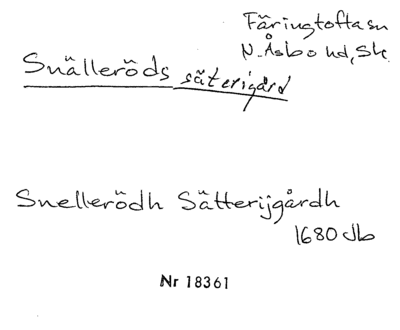 Färingtofta sn
N. Åsbo hd, Sk.
Snälleröds säterigård
Snellerödh Sätterijgårdh
1680 Jb
Nr 18361